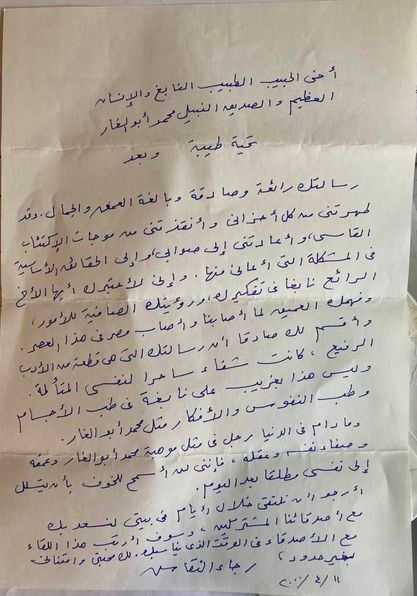 أخى الحبيب الطبيب النابغ والإنسان
العظيم والصديق النبيل محمد أبو الغار
تحية طيبة وبعد
رسالتك رائعة وصادقة وبالغة العمق والجمال، وقد
طهرتنى من كل أحزانى وأنقذتنى من موجات الإكتئاب
القاسى، وأعادتنى إلى صوابى، وإلى الحقائق الأساسية
فى المشكلة التى أعانى منها. وإنى لأعتبرك أيها الأخ
الرائع نابغا فى تفكيرك، ورؤيتك الصافية للأمور،
وفهمك العميق لما أصابنا وأصاب مصر فى هذا العصر.
وأقسم لك صادقا أن رسالتك التى هى قطعة من الأدب
الرفيع، كانت شفاء ساحرا لنفسى المتألمة.
وليس هذا بغريب على نابغة فى طب الأجسام
وطب النفوس والأفكار مثل محمد أبو الغار.
ومادام فى الدنيا رجل فى مثل موهبة محمد أبو الغار وعمقه
وصفاء نفسه وعقله، فإننى لن أسمح للخوف بأن يتسلل
إلى نفسى مطلقا بعد اليوم.
أرجو أن نلتقى خلال أيام فى بيتى لنسعد بك
مع أصدقائنا المشتركين، وسوف أرتب هذا اللقاء
مع الأصدقاء فى الوقت الذى يناسبك. لك محبتى وامتنانى
بغير حدود، رجاء النقاش